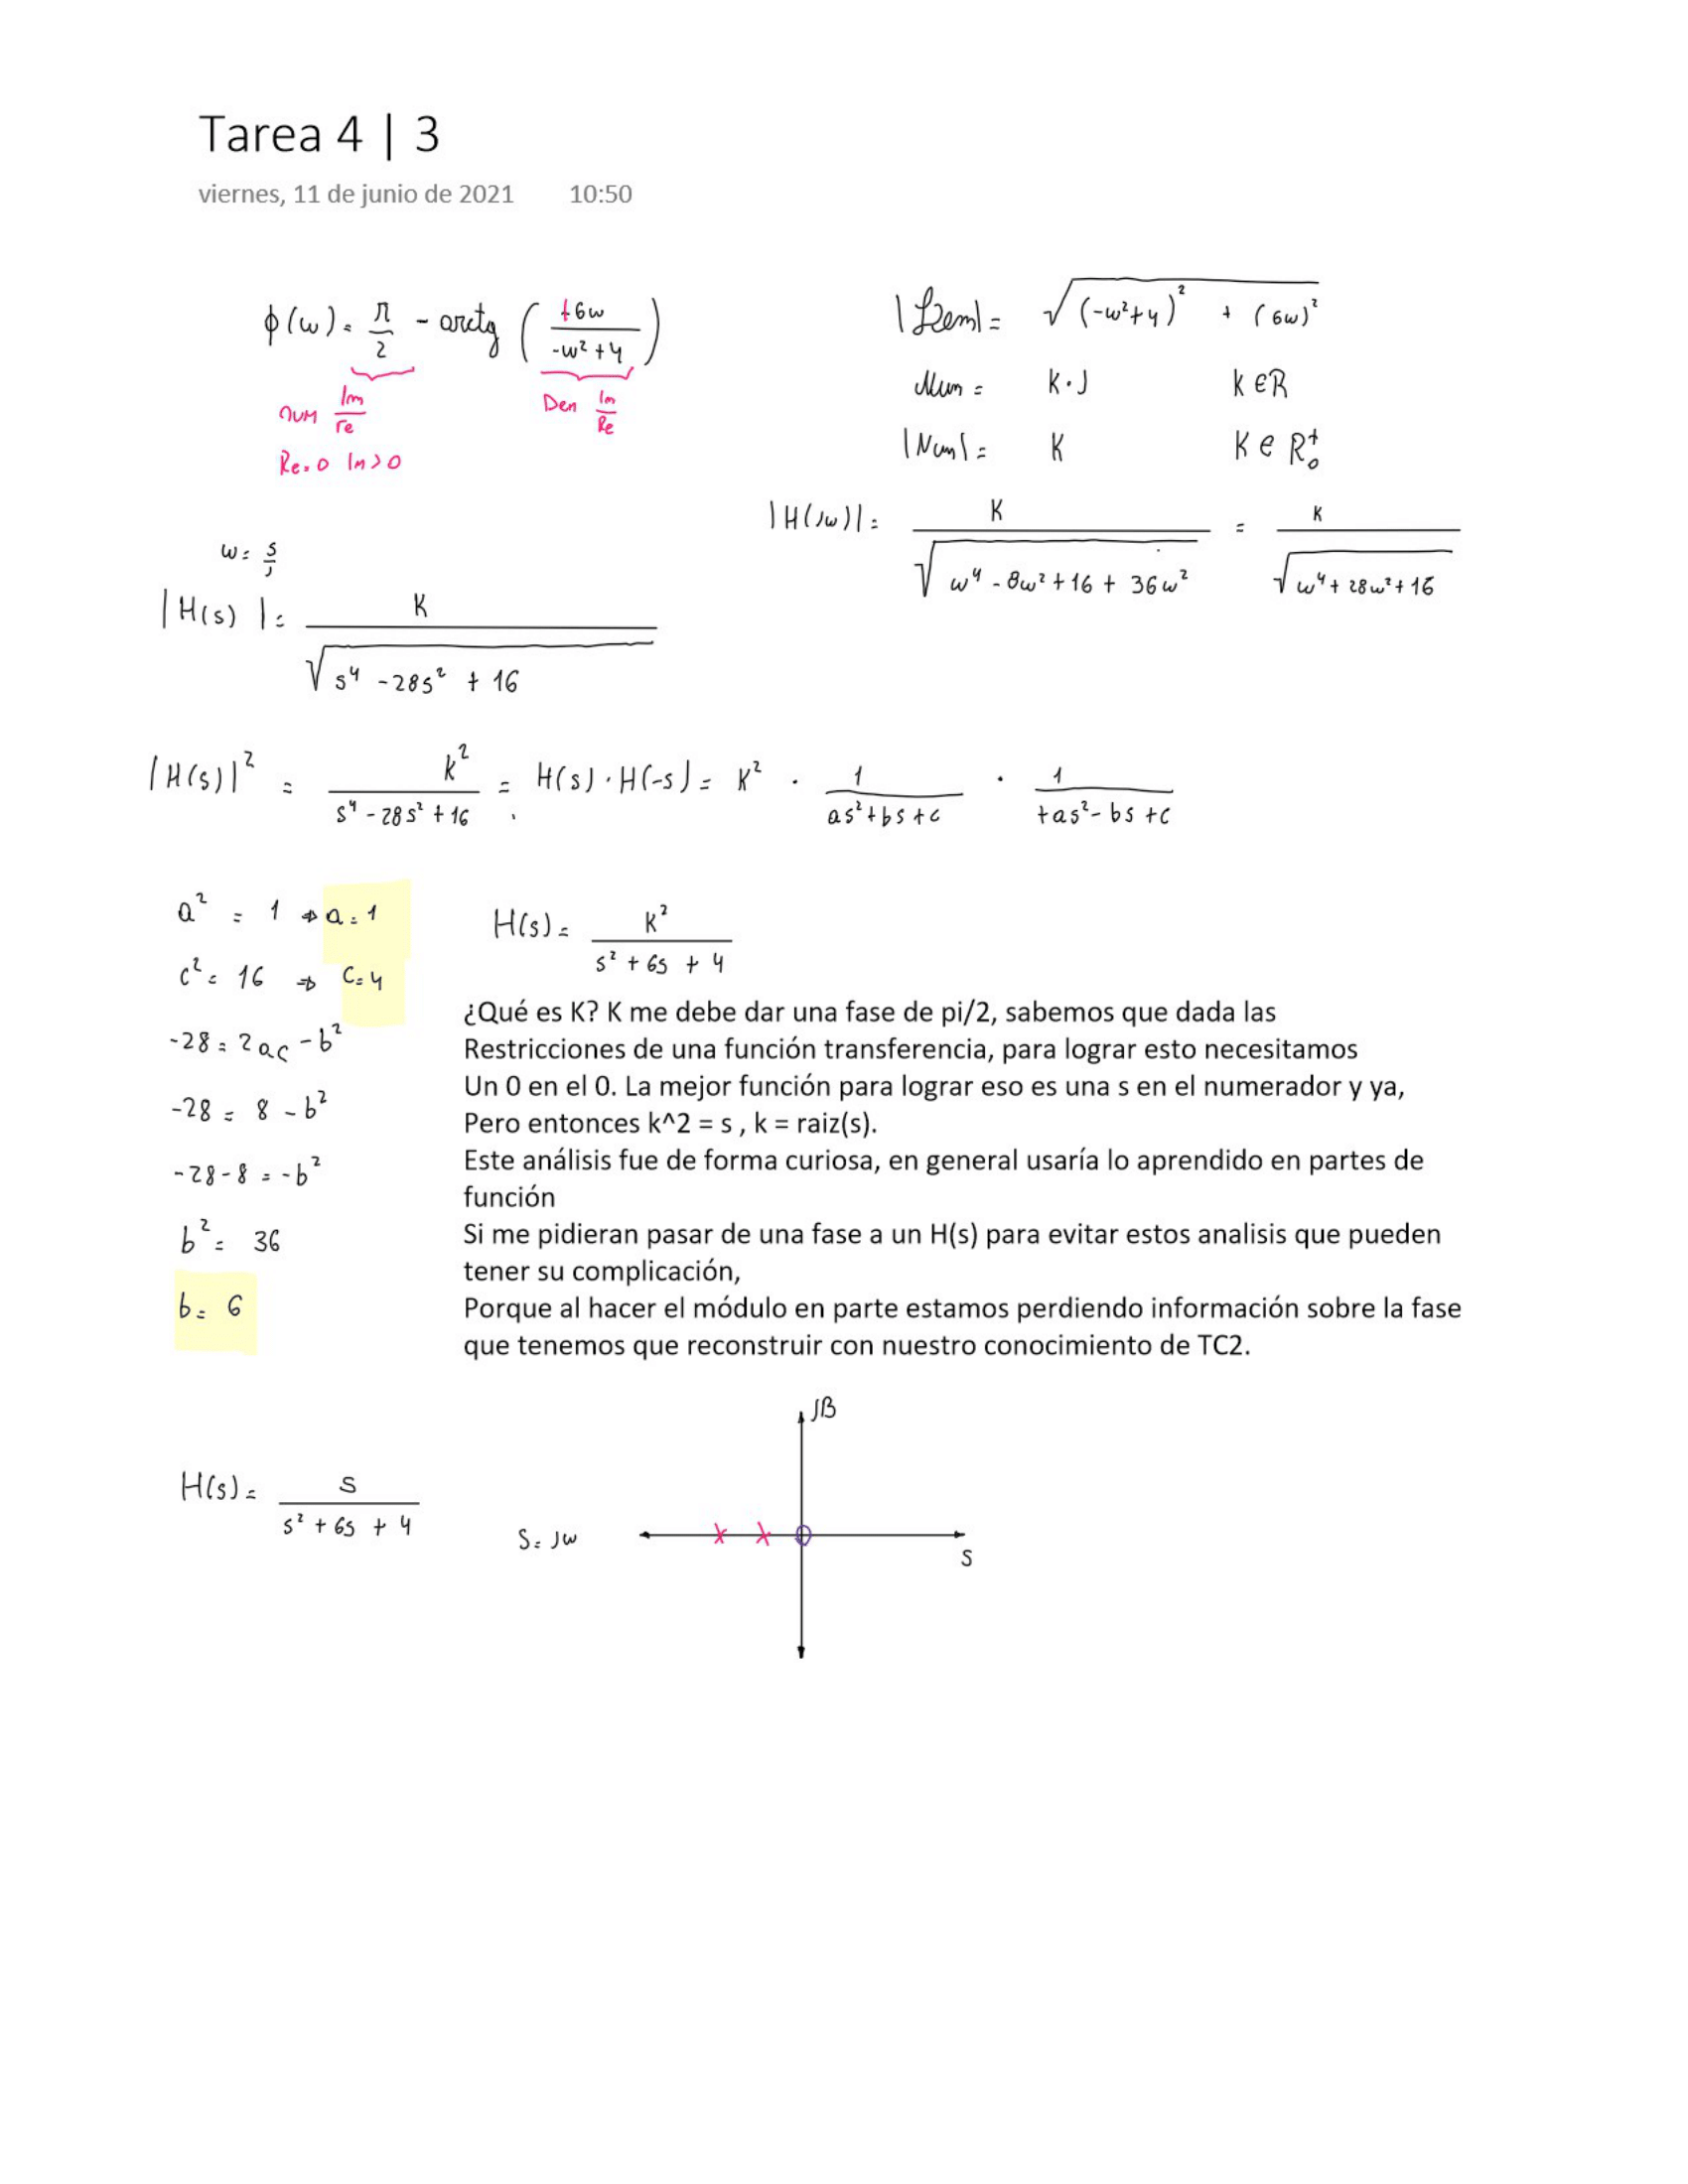 Tarea 4 | 3
viernes, 11 de junio de 2021 10:50
ϕ(w) = π/2 - arctg ( +6w / -w² + 4 )
num Im/re
Den Im/Re
Re=0 Im>0
|Dem| = √( (-w²+4)² + (6w)² )
Num = K·J K ∈ R
|Num| = K K ∈ R₀⁺
|H(Jw)| = K / √( w⁴ - 8w² + 16 + 36w² ) = K / √( w⁴ + 28w² + 16 )
w = s/J
|H(s)| = K / √( s⁴ - 28s² + 16 )
|H(s)|² = k² / ( s⁴ - 28s² + 16 ) = H(s)·H(-s) = K² · 1 / ( as² + bs + c ) · 1 / ( +as² - bs + c )
a² = 1 ⇒ a = 1
c² = 16 ⇒ C = 4
-28 = 2ac - b²
-28 = 8 - b²
-28 - 8 = -b²
b² = 36
b = 6
H(s) = K² / ( s² + 6s + 4 )
¿Qué es K? K me debe dar una fase de pi/2, sabemos que dada las
Restricciones de una función transferencia, para lograr esto necesitamos
Un 0 en el 0. La mejor función para lograr eso es una s en el numerador y ya,
Pero entonces k^2 = s , k = raiz(s).
Este análisis fue de forma curiosa, en general usaría lo aprendido en partes de
función
Si me pidieran pasar de una fase a un H(s) para evitar estos analisis que pueden
tener su complicación,
Porque al hacer el módulo en parte estamos perdiendo información sobre la fase
que tenemos que reconstruir con nuestro conocimiento de TC2.
H(s) = s / ( s² + 6s + 4 )
S = Jw
JB
S